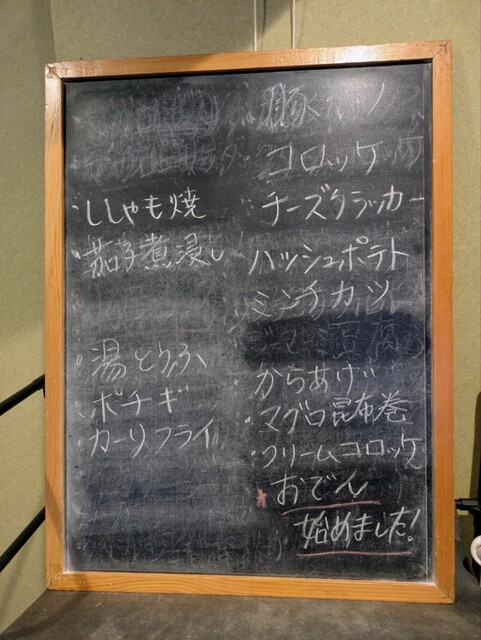 ・ししゃも焼
・茄子煮浸し
・湯とうふ
・ポチギ
・カーリフライ
コロッケ
チーズクラッカー
ハッシュポテト
ミンチカツ
・からあげ
・マグロ昆布巻
・クリームコロッケ
*おでん
始めました!